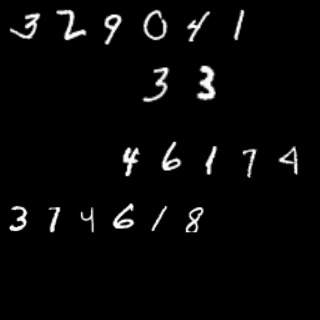 329041
33
46174
374618